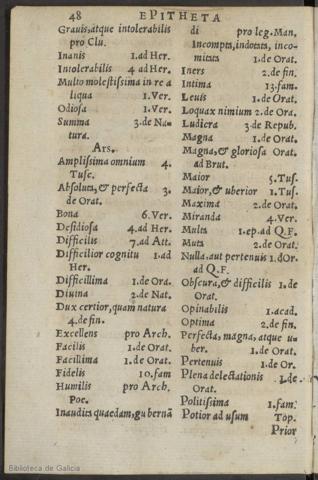 48 EPITHETA
Grauis, atque intolerabilis
pro Clu.
Inanis 1.ad Her.
Intolerabilis 4 ad Her.
Multo molestissima in re a
liqua 1.Ver.
Odiosa 1.Ver.
Summa 3.de Na-
tura.
Ars.
Amplissima omnium 4.
Tusc.
Absoluta, & perfecta 3.
de Orat.
Bona 6.Ver.
Desidiosa 4.ad Her.
Difficilis 7.ad Att.
Difficilior cognitu 1.ad
Her.
Difficillima 1.de Ora.
Diuina 2.de Nat.
Dux certior, quam natura
4.de fin.
Excellens pro Arch.
Facilis 1.de Orat.
Facillima 1.de Orat.
Fidelis 10.fam
Humilis pro Arch.
Poe.
Inaudita quaedam, gu bernā
di pro leg. Man.
Incompta, indotata, inco-
mitata 1.de Orat.
Iners 2.de fin.
Intima 13.fam.
Leuis 1.de Orat.
Loquax nimium 2.de Ora.
Ludicra 3 de Repub.
Magna 1.de Orat.
Magna, & gloriosa Orat.
ad Brut.
Maior 5.Tus.
Maior, & uberior 1.Tus.
Maxima 2.de Orat.
Miranda 4.Ver.
Multa 1.ep.ad Q.F.
Muta 2.de Orat.
Nulla.aut pertenuis
ad Q.F.
Obscura, & difficilis 1.de
Orat.
Opinabilis 1.acad.
Optima 2.de fin.
Perfecta, magna, atque u-
ber. 1.de Orat.
Pertenuis 1.de Or.
Plena delectationis 1.de
Orat.
Politissima 1.fam.
Potior ad usum Top.
Prior
Biblioteca de Galicia